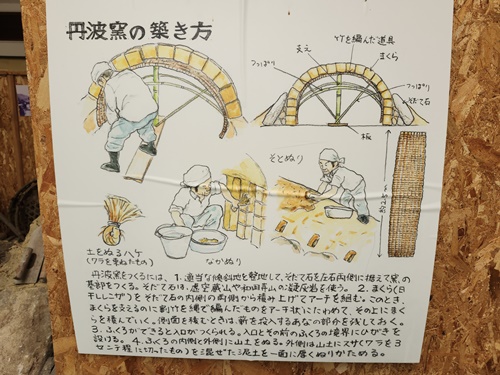 丹波窯の築き方
竹を編んだ道具
支え
まくら
つっぱり
つっぱり
そだて石
板
そとぬり
土をぬるハケ
(ワラを束ねたもの)
なかぬり
丹波窯をつくるには、1.適当な傾斜地を整地して、そだて石を左右両側に据えて窯の
基部をつくる。そだて石は、虚空蔵山や和田寺山の凝灰岩を使う。2.まくら(日
干しレンガ)をそだて石の内側の両側から積み上げてアーチを組む。このとき、
まくらを支えるのに割竹を縄で編んだものをアーチ状にたわめて、その上にまく
らを積んでいく。側面を積むときは、薪を投入するあなの部分を残しておく。
3.ふくろができると入口がつくられる。入口とその前のふくろの境界にひがきを
設ける。4.ふくろの内側と外側に山土をぬる。外側は山土にスサ(ワラを3
センテ程に切ったもの)を混ぜた泥土を一面に厚くぬりかためる。